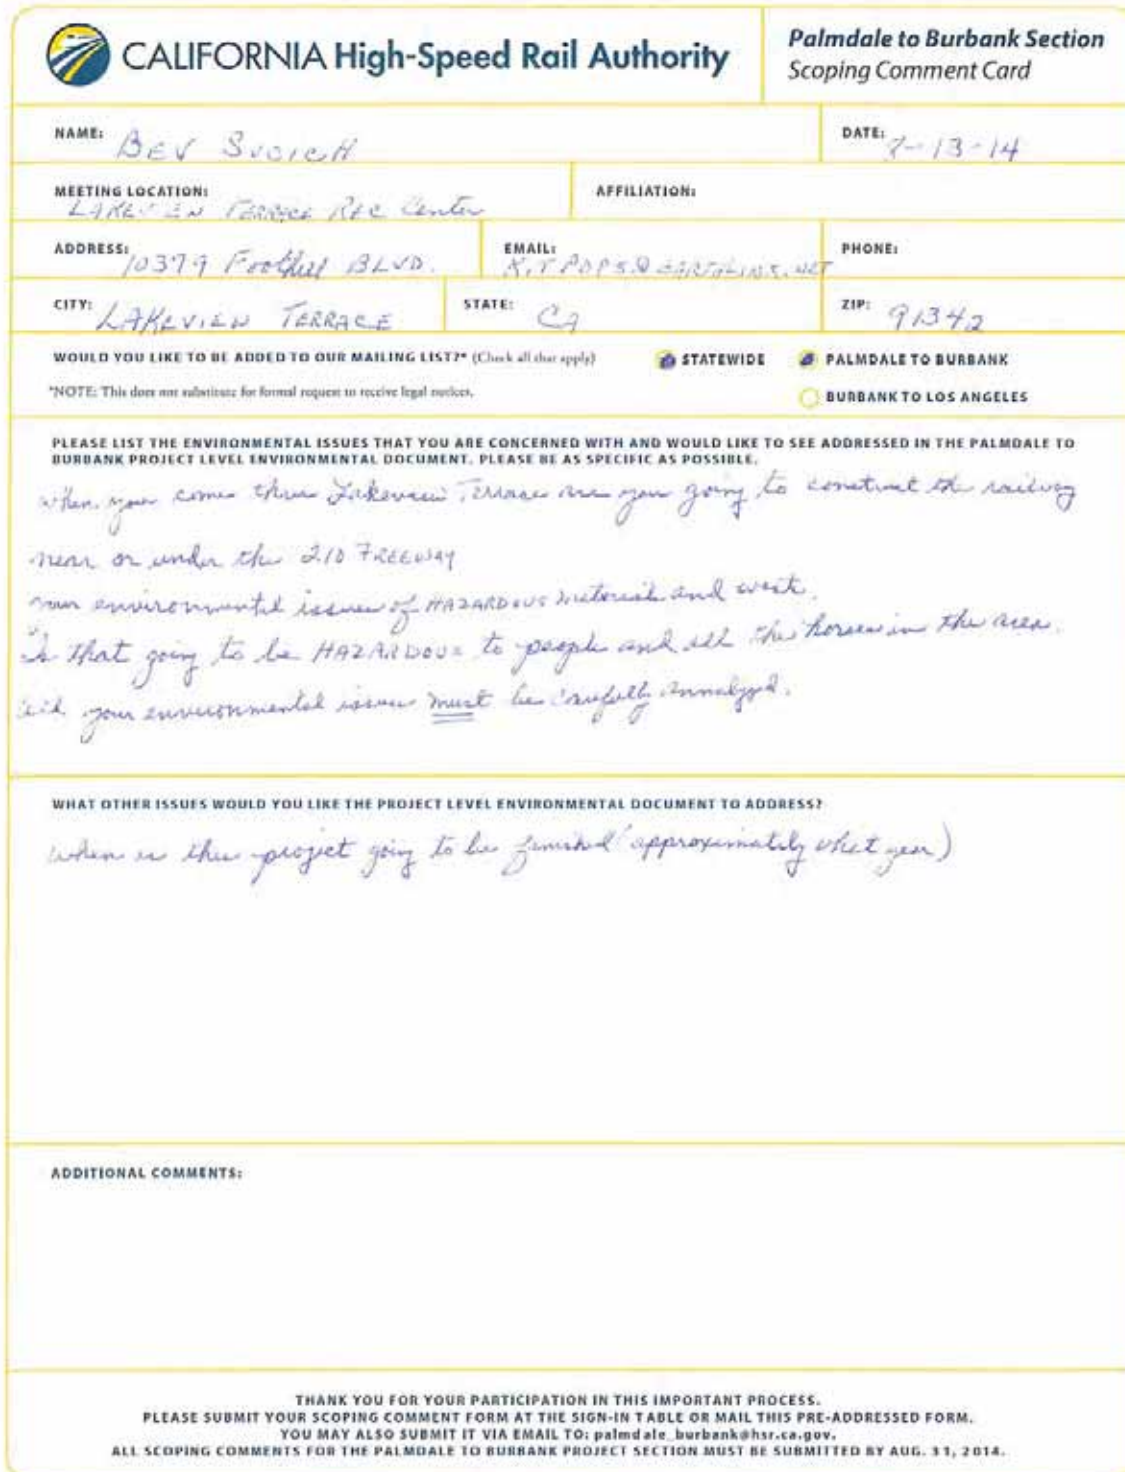 CALIFORNIA High-Speed Rail Authority
Palmdale to Burbank Section
Scoping Comment Card
NAME: BEV
DATE: -13-14
MEETING LOCATION: LAKEVIEW TERRACE REC Center
AFFILIATION:
ADDRESS: 10379 Foothill BLVD.
EMAIL:
PHONE:
CITY: LAKEVIEW TERRACE
STATE: CA
ZIP: 91342
WOULD YOU LIKE TO BE ADDED TO OUR MAILING LIST?* (Check all that apply)
STATEWIDE
PALMDALE TO BURBANK
*NOTE: This does not substitute for formal request to receive legal notices.
BURBANK TO LOS ANGELES
PLEASE LIST THE ENVIRONMENTAL ISSUES THAT YOU ARE CONCERNED WITH AND WOULD LIKE TO SEE ADDRESSED IN THE PALMDALE TO
BURBANK PROJECT LEVEL ENVIRONMENTAL DOCUMENT. PLEASE BE AS SPECIFIC AS POSSIBLE.
when your come thru Lakeview Terrace are you going to construct the railway
near or under the 210 FREEWAY
environmental issues of HAZARDOUS materials and
Is that going to be HAZARDOUS to people and all the horses in the area.
your environmental issues must be carefully annalyzed.
WHAT OTHER ISSUES WOULD YOU LIKE THE PROJECT LEVEL ENVIRONMENTAL DOCUMENT TO ADDRESS?
when is this project going to be finished (approximately what year)
ADDITIONAL COMMENTS:
THANK YOU FOR YOUR PARTICIPATION IN THIS IMPORTANT PROCESS.
PLEASE SUBMIT YOUR SCOPING COMMENT FORM AT THE SIGN-IN TABLE OR MAIL THIS PRE-ADDRESSED FORM.
YOU MAY ALSO SUBMIT IT VIA EMAIL TO: palmdale_burbank@hsr.ca.gov.
ALL SCOPING COMMENTS FOR THE PALMDALE TO BURBANK PROJECT SECTION MUST BE SUBMITTED BY AUG. 31, 2014.